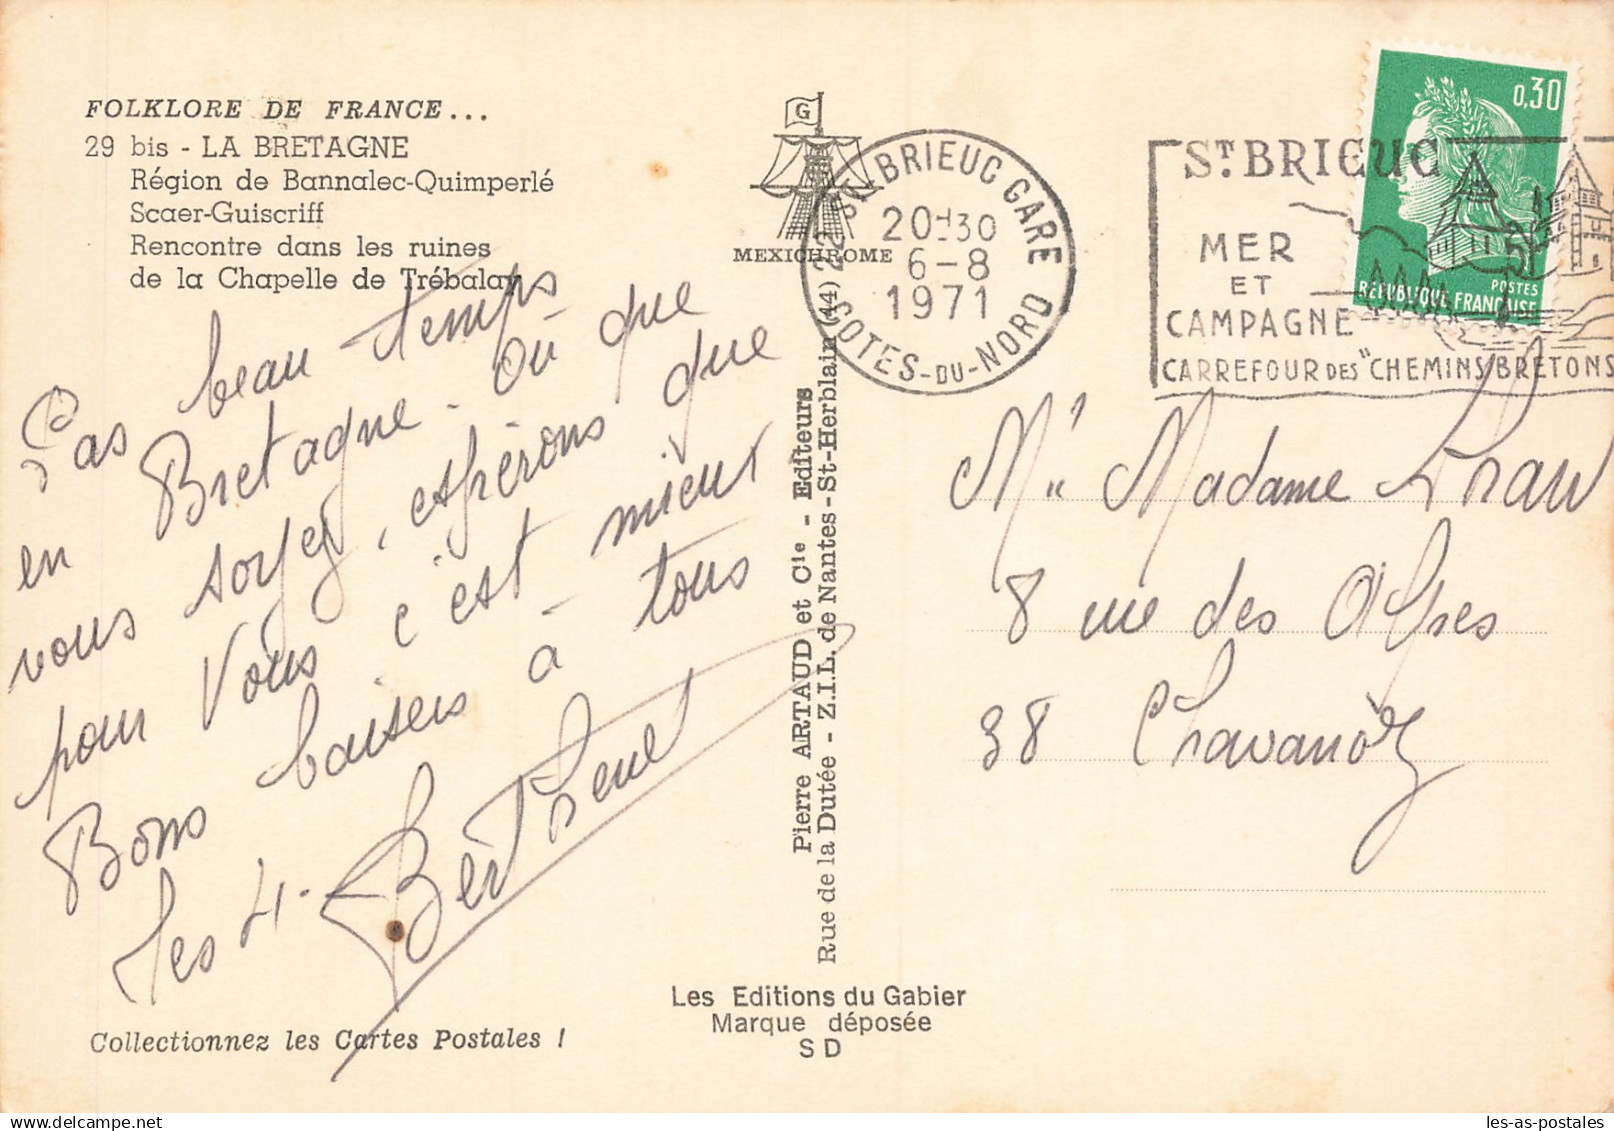 FOLKLORE DE FRANCE...
29 bis - LA BRETAGNE
Région de Bannalec-Quimperlé
Scaer-Guiscriff
Rencontre dans les ruines
de la Chapelle de Trébalay
Pas beau temps
en Bretagne - où que
vous soyez, espérons que
pour vous c'est mieux
Bons baisers à tous
les 4.
Collectionnez les Cartes Postales !
G
MEXICHROME
Pierre ARTAUD et Cie - Editeurs
Rue de la Dutée - Z.I.L. de Nantes-St-Herblain (44)
Les Editions du Gabier
Marque déposée
SD
ST BRIEUC GARE
20H30
6-8
1971
COTES-DU-NORD
22
ST BRIEUC
MER
ET
CAMPAGNE
CARREFOUR DES "CHEMINS BRETONS
0,30
POSTES
REPUBLIQUE FRANÇAISE
Mr Madame
8 rue des Alpes
38 Chavanoz
les-as-postales
delcampe.net